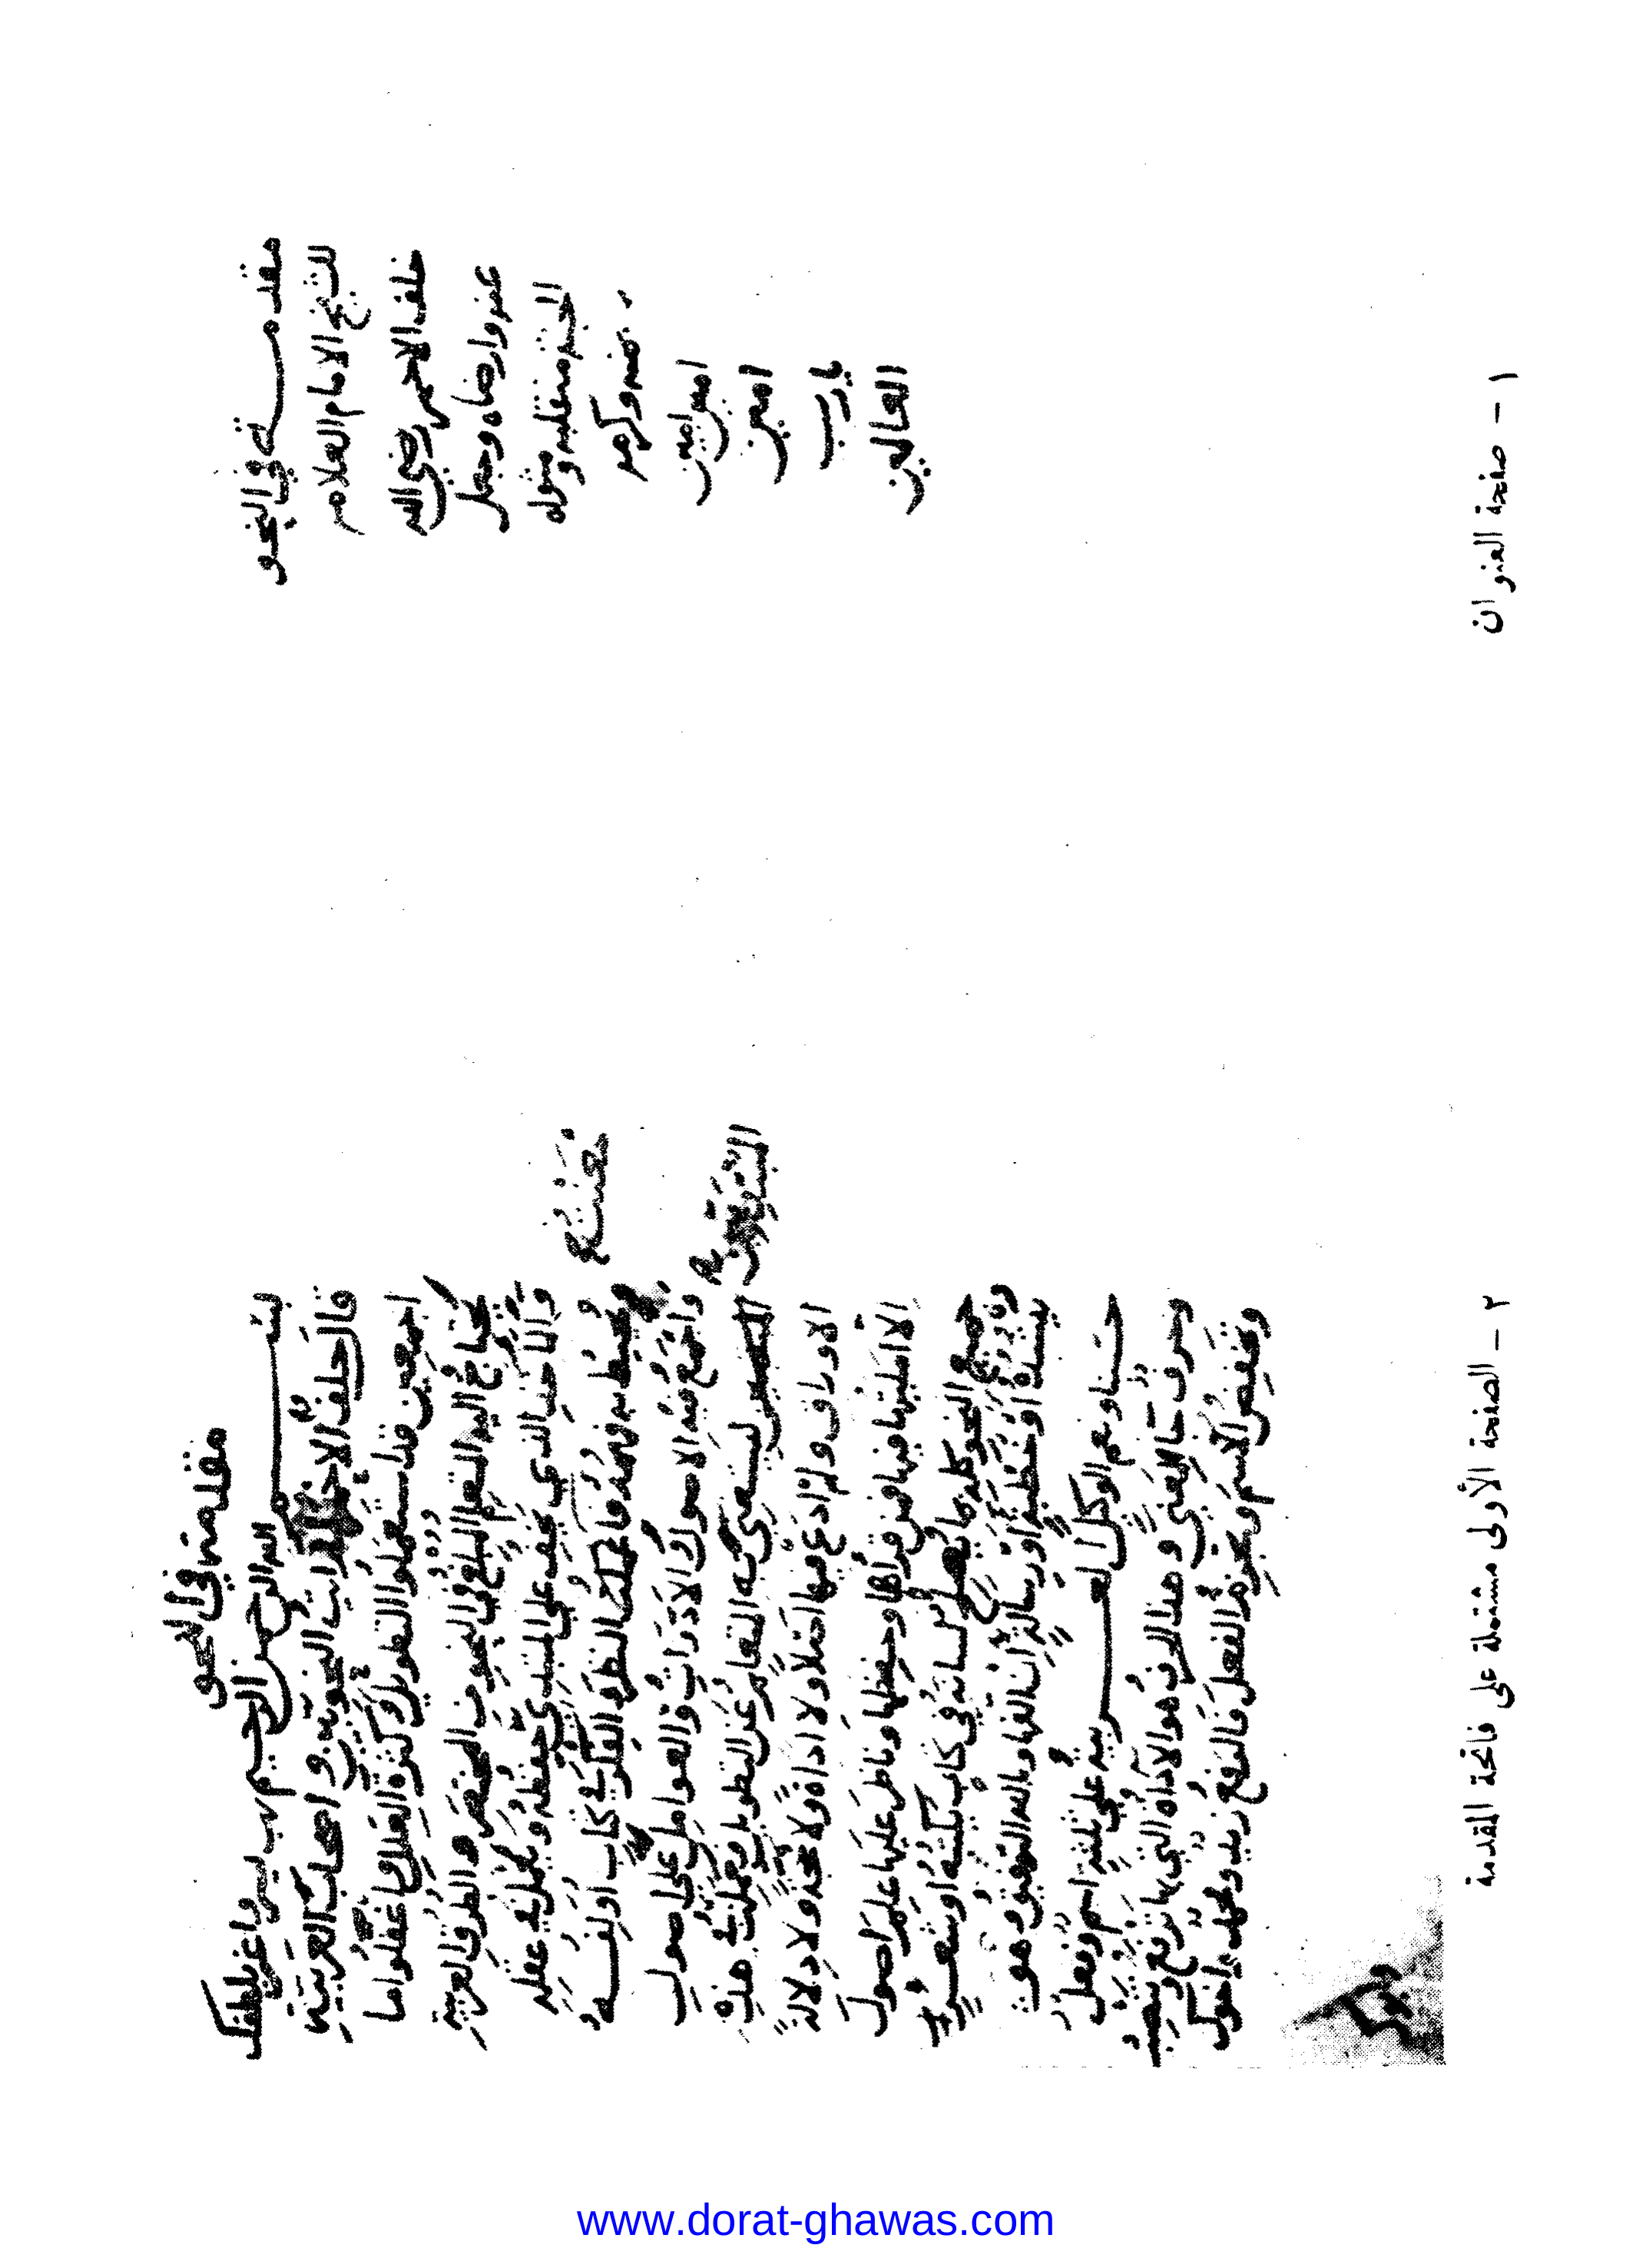 مقدمة في النحو
للشيخ الامام العلامه
خلف الاحمر رضي الله
عنه وارضاه وجعل
الجنة منقلبه ومثواه
بمنه وكرمه
امين امين
امين
يارب
العالمين
١ - صفحة العنوان
مقدمة في النحو
بسم الله الرحمن الرحيم رب يسر واعن بلطفك
قال خلف الاحمر لما رايت النحويين واصحاب العربية
اجمعين قد استعملوا التطويل وكثرة العلل واغفلوا ما
يحتاج اليه المتعلم المتبلغ في النحو من المختصر والطرق العربية
والماخذ الذي يخف على المبتدي حفظه ويعمل في عقله
ويحيط به فهمه فامعنت النظر والفكر في كتاب اولفه
واجمع فيه الاصول والادوات والعوامل على اصول
المبتدئين
ليستغني به المتعلم عن التطويل فعملت هذه
الاوراق ولم ادع فيها اصلا ولا اداة ولا حجة ولا دلالة
الا امليتها فيها فمن قراها وحفظها وناظر عليها علم اصول
جميع النحو كله مما يصلح لسانه في كتاب يكتبه او شعر
ينشده او خطبة او رسالة ان الفها وبالله التوفيق وهو
حسبنا ونعم الوكيل العربية على ثلثة اسم وفعل
وحرف جا لمعنى وهذا الحرف هو الاداة التي بها ترفع وتنصب
وتخفض الاسم وتجزم الفعل فالرفع زيد ومحمد اخوك
وابوك
٢ - الصفحة الأولى مشتملة على فاتحة المقدمة
www.dorat-ghawas.com